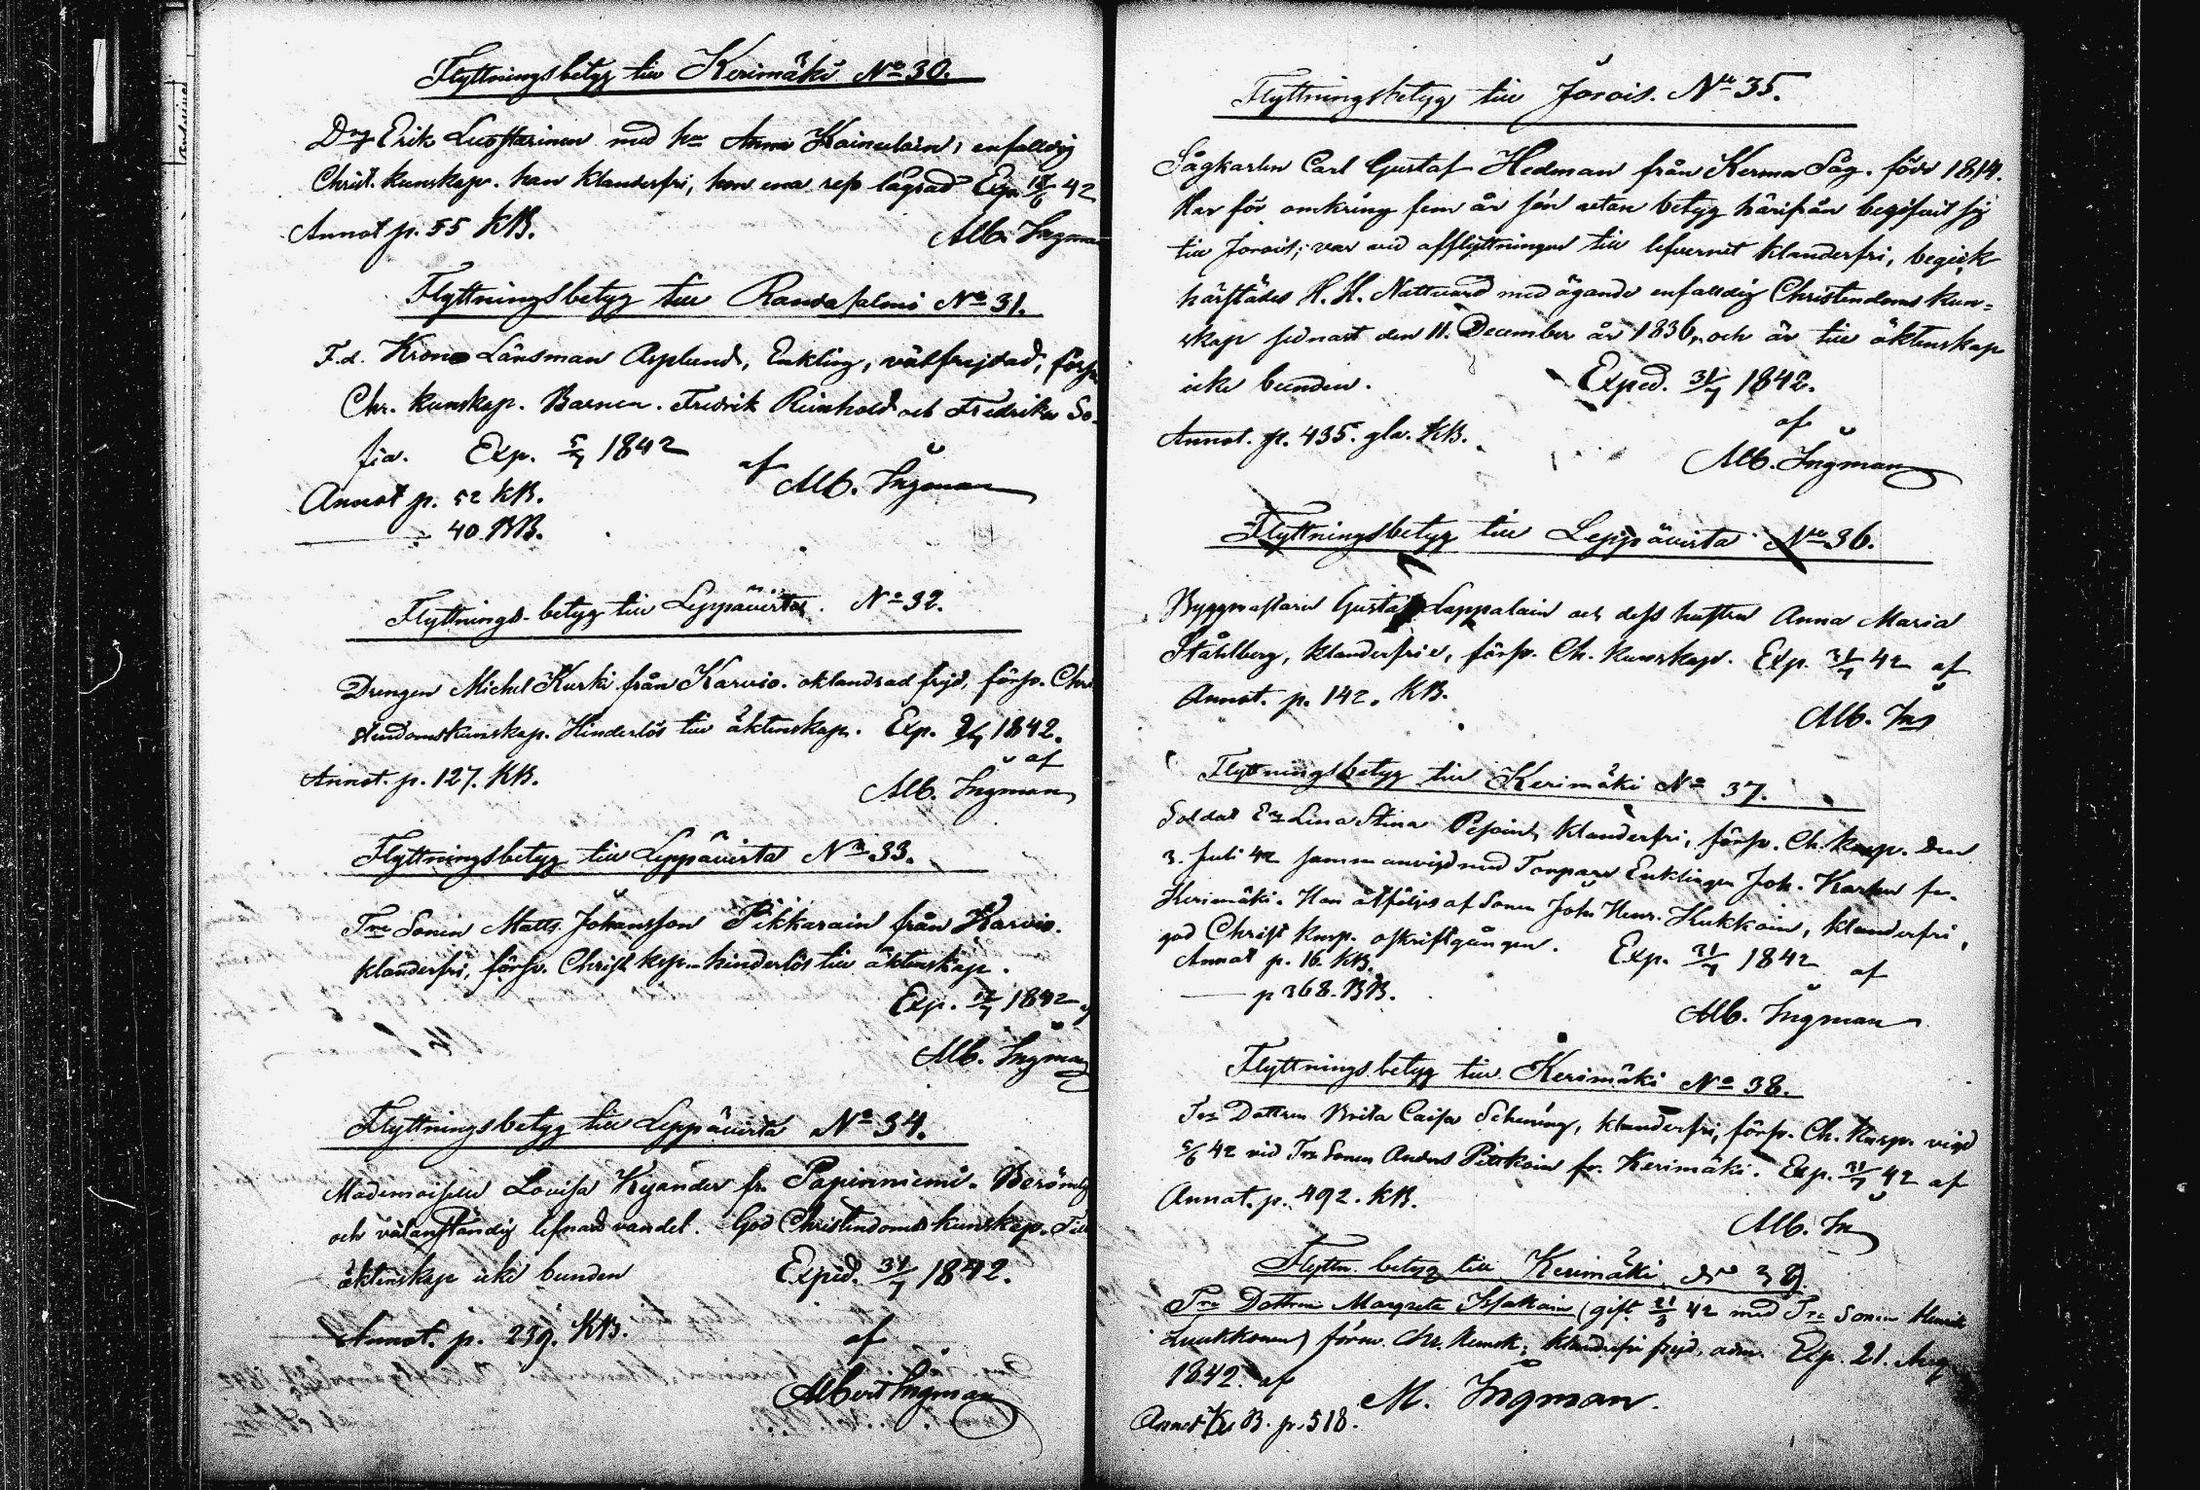 Flyttningsbetyg till Kerimäki No 30.
Dng Erik Luostarinen med h. Anna Kainulain, enfaldig
Christ. kunskap. han klanderfri, hon Exp. 42
Annot p. 55 KB. Alb. Ingman
Flyttningsbetyg till Randasalmi No 31.
F.d. Krono Länsman Asplund, Enkling, välfrejdad, försv.
Chr. kunskap. Barnen. Fredrik Reinhold och Fredrika So-
fia. Exp. 5/7 1842 af
Annot p. 52 KB. Alb. Ingman
40 BB.
Flyttnings-betyg till Leppävirta. No 32.
Drengen Michel Kurki från Karvio. oklandrad frejd, försv. Chri
stendomskunskap. Hinderlös till äktenskap. Exp. 9/7 1842.
af
Annot. p. 127. KB. Alb. Ingman
Flyttningsbetyg till Leppävirta No 33.
Tre Sonen Matts Johansson Pikkarain från Karvio.
klanderfri, försv. Christ. ksp. hinderlös till äktenskap.
Exp. 12/7 1842
Alb. Ingman
Flyttningsbetyg till Leppävirta No 34.
Mademoiselle Lovisa Kyander fr. Papinniemi. Berömlig
och välanständig lefnadsvandel. God Christendomskunskap. Till
äktenskap icke bunden Exped. 31/7 1842.
Annot. p. 239. KB. af
Albert Ingman
Flyttningsbetyg till Jorois. No 35.
Sågkarlen Carl Gustaf Hedman från Kerma Såg. född 1814.
Har för omkring fem år sen utan betyg härifrån begifvit sig
till Jorois; var vid afflyttningen till lefvernet klanderfri, begick
härstädes H. H. Nattvard med ägande enfaldig Christendoms kun-
skap sednast den 11. December år 1836, och är till äktenskap
icke bunden. Exped. 31/7 1842.
af
Annot. p. 435. gla. KB. Alb. Ingman
Flyttningsbetyg till Leppävirta No 36.
Byggmästaren Gustaf Lappalain och dess hustru Anna Maria
Ståhlberg, klanderfrie, försv. Ch. kunskap. Exp. 31/7 42 af
Annot. p. 142. KB. Alb. Ing
Flyttningsbetyg till Kerimäki No 37.
Soldat En Lina Stina klanderfri, försv. Ch. knsp. Den
3. Juli 42 samman vigd med Torpare Enklingen Joh. Karhu fr.
Kerimäki. Hon åtföljes af Sonen Joh Henr. Kukkoin, klanderfri,
god Christ knsp. oskriftgången. Exp. 31/7 1842 af
Annot p. 16. KB.
p 368. BB. Alb. Ingman
Flyttningsbetyg till Kerimäki No 38.
Tre Dottren Brita Caisa klanderfri, försv. Ch. Knsp. vigd
5/6 42 vid Tre Sonen Anders fr. Kerimäki. Exp. 31/7 42 af
Annot. p. 492. KB. Alb. In
Flyttn. betyg till Kerimäki No 39.
Tre Dottren Margreta (gift 42 med Tre Sonen Henrik
Luukkonen) försv. Chr. Kunsk, klanderfri frejd, adm. Exp. 21. Aug
1842. af M. Ingman.
Annot K. B. p. 518.